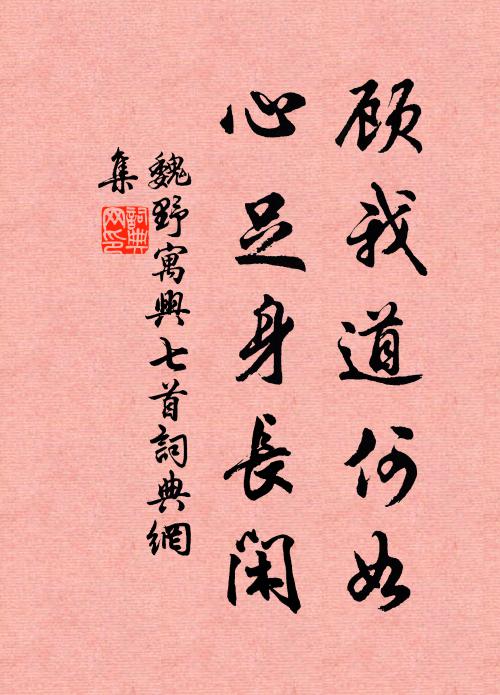 顾我道何如
心足身長閑
魏野寓興七首詞典網
集
詞典
网印